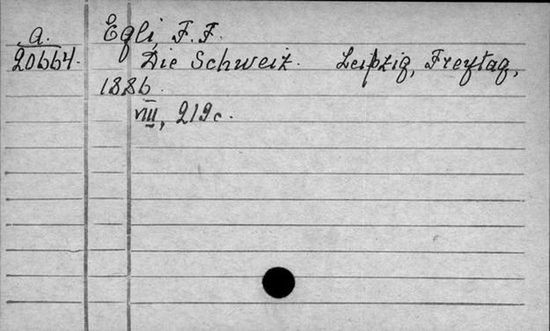 a.
20664.
Egli, F. F.
Die Schweiz. Leipzig, Freytag,
1886.
VIII, 219 c.